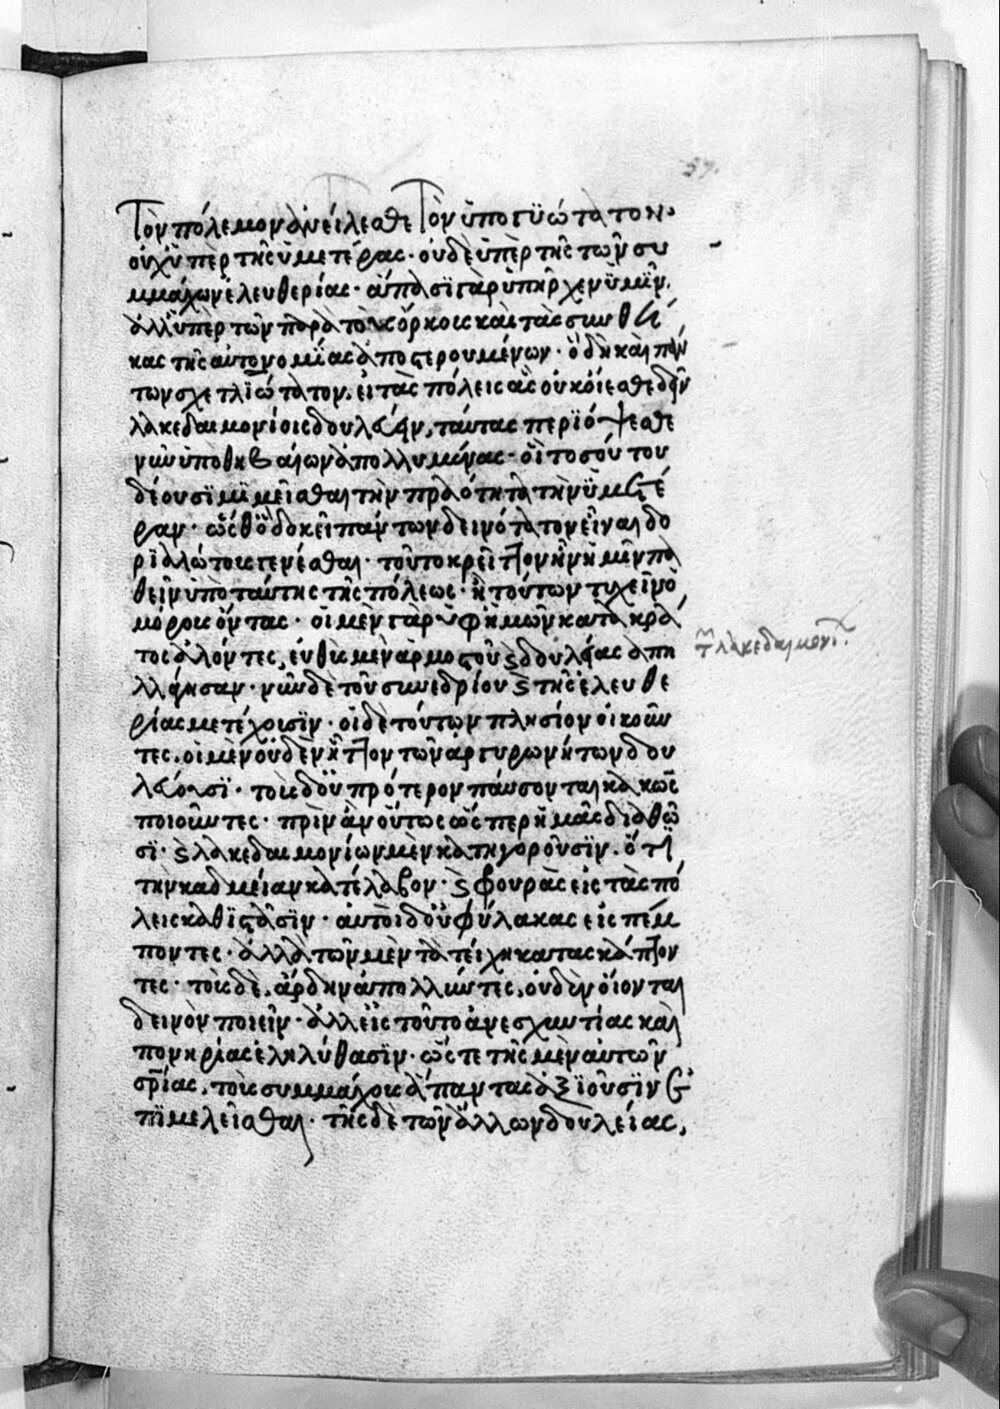 57.
Τὸν πόλεμον ἀνείλεσθε Τὸν ὑπογϋώτατον·
οὐχ ὑπὲρ τῆς ὑμετέρας· οὐδ ὑπὲρ τῆς τῶν συ
μμάχων ἐλευθερίας· ἅπασϊ γὰρ ὑπῆρχεν ὑμῖν.
ἀλλ ὑπὲρ τῶν παρὰ τοὺς ὅρκους καὶ τὰς συνθή
κας τῆς αὐτονομΐας ἀποστερουμένων· ὃ δὴ καὶ πάν
των σχετλϊώτατον. εἰ τὰς πόλεις ἃς οὐκ οἴεσθε δεῖν
λακεδαιμονίοις δουλεύειν, ταύτας περϊόψεσθε
νῦν ὑπὸ θηβαίων ἀπολλυμένας· οἳ τοσούτου
δέουσϊ μϊμεῖσθαι τὴν πραότητα τὴν ὑμετέ
ραν· ὥσθ ὃ δοκεῖ πάντων δεινότατον εἶναι δο
ρϊαλώτους γενέσθαι· τοῦτο κρεῖττον ἦν ἡμῖν πα
θεῖν ὑπὸ ταύτης τῆς πόλεως· ἢ τούτων τυχεῖν ὁ
μόρους ὄντας· οἱ μὲν γὰρ ὑφ ἡμῶν κατὰ κρά
τος ἁλόντες, εὐθὺς μὲν ἁρμοστοῦ καὶ δουλείας ἀπη
λλάγησαν· νῦν δὲ τοῦ συνεδρίου καὶ τῆς ἐλευθε
ρίας μετέχουσϊν· οἱ δὲ τούτων πλησίον οἰκοῦν
τες. οἱ μὲν οὐδὲν ἧττον τῶν ἀργυρωνήτων δου
λεύουσϊ· τοὺς δ οὐ πρότερον παύσονται κακῶς
ποιοῦντες· πρὶν ἂν οὕτως ὥσπερ ἡμᾶς διαθῶ
σϊ· καὶ λακεδαιμονίων μὲν κατηγοροῦσϊν. ὅτϊ
τὴν καδμείαν κατέλαβον· καὶ φρουρὰς εἰς τὰς πό
λεις καθϊστᾶσϊν· αὐτοὶ δ οὐ φύλακας εἰσπέμ
ποντες· ἀλλὰ τῶν μὲν τὰ τείχη κατασκάπτον
τες· τοὺς δὲ, ἄρδην ἀπολλύντες. οὐδὲν οἴονται
δεινὸν ποιεῖν· ἀλλ εἰς τοῦτο ἀνεσχυντίας καὶ
πονηρίας ἐληλύθασϊν· ὥστε τῆς μὲν αὑτῶν
σρίας, τοὺς συμμάχους ἅπαντας ἀξϊοῦσϊν ἐ
πϊμελεῖσθαι· τῆς δὲ τῶν ἄλλων δουλείας,